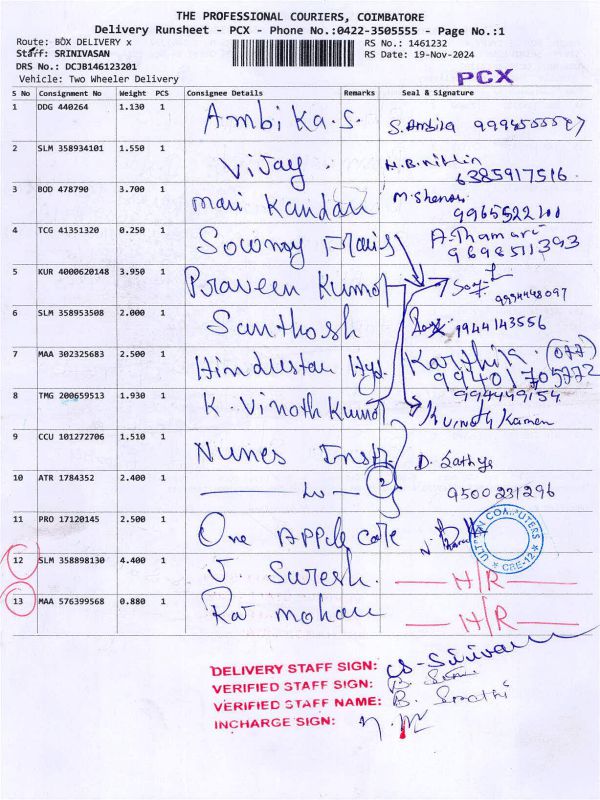 THE PROFESSIONAL COURIERS, COIMBATORE
Delivery Runsheet - PCX - Phone No.:0422-3505555 - Page No.:1
Route: BOX DELIVERY x
RS No.: 1461232
Staff: SRINIVASAN
RS Date: 19-Nov-2024
DRS No.: DCJB146123201
PCX
Vehicle: Two Wheeler Delivery
S No Consignment No Weight PCS Consignee Details Remarks Seal & Signature
1 DDG 440264 1.130 1 Ambika.S. S.Ambika
2 SLM 358934101 1.550 1 Vijay. 6385917516.
3 BOD 478790 3.700 1 mari Kandan M.Shenou
4 TCG 41351320 0.250 1 A.Thamarai 9698511393
5 KUR 4000620148 3.950 1 Praveen Kumar 9994448097
6 SLM 358953508 2.000 1 Santhosh 9944143556
7 MAA 302325683 2.500 1 Hindustan Hyd. Karthik. (077)
8 TMG 200659513 1.930 1 K. Vinoth Kumar 994449154
K VINOTH Kumar
9 CCU 101272706 1.510 1 Nunes Instr. D. Sathya
10 ATR 1784352 2.400 1 2 9500231296
11 PRO 17120145 2.500 1 One Apple care
COMPUTERS
CBE-12
12 SLM 358898130 4.400 1 J. Suresh. H/R
13 MAA 576399568 0.880 1 Raj mohan H/R
DELIVERY STAFF SIGN:
VERIFIED STAFF SIGN:
VERIFIED STAFF NAME: B.
INCHARGE SIGN: